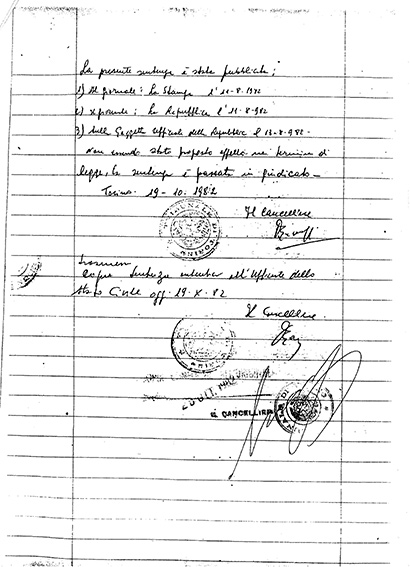 La presente sentenza è stata pubblicata;
1) Sul giornale: La Stampa l'11-8-1982
2) giornale: La Repubblica l'11-8-982
3) Sulla Gazzetta Ufficiale della Repubblica l 13-8-982-
Non essendo stato proposto appello nei termini di
legge, la sentenza è passata in giudicato-
Torino 19-10-1982
Il Cancelliere
TRIBUNALE DI TORINO
Copia Sentenza all'Ufficiale dello
Stato Civile oggi 19-X-82
Il Cancelliere
OTT. 1982
IL CANCELLIERE